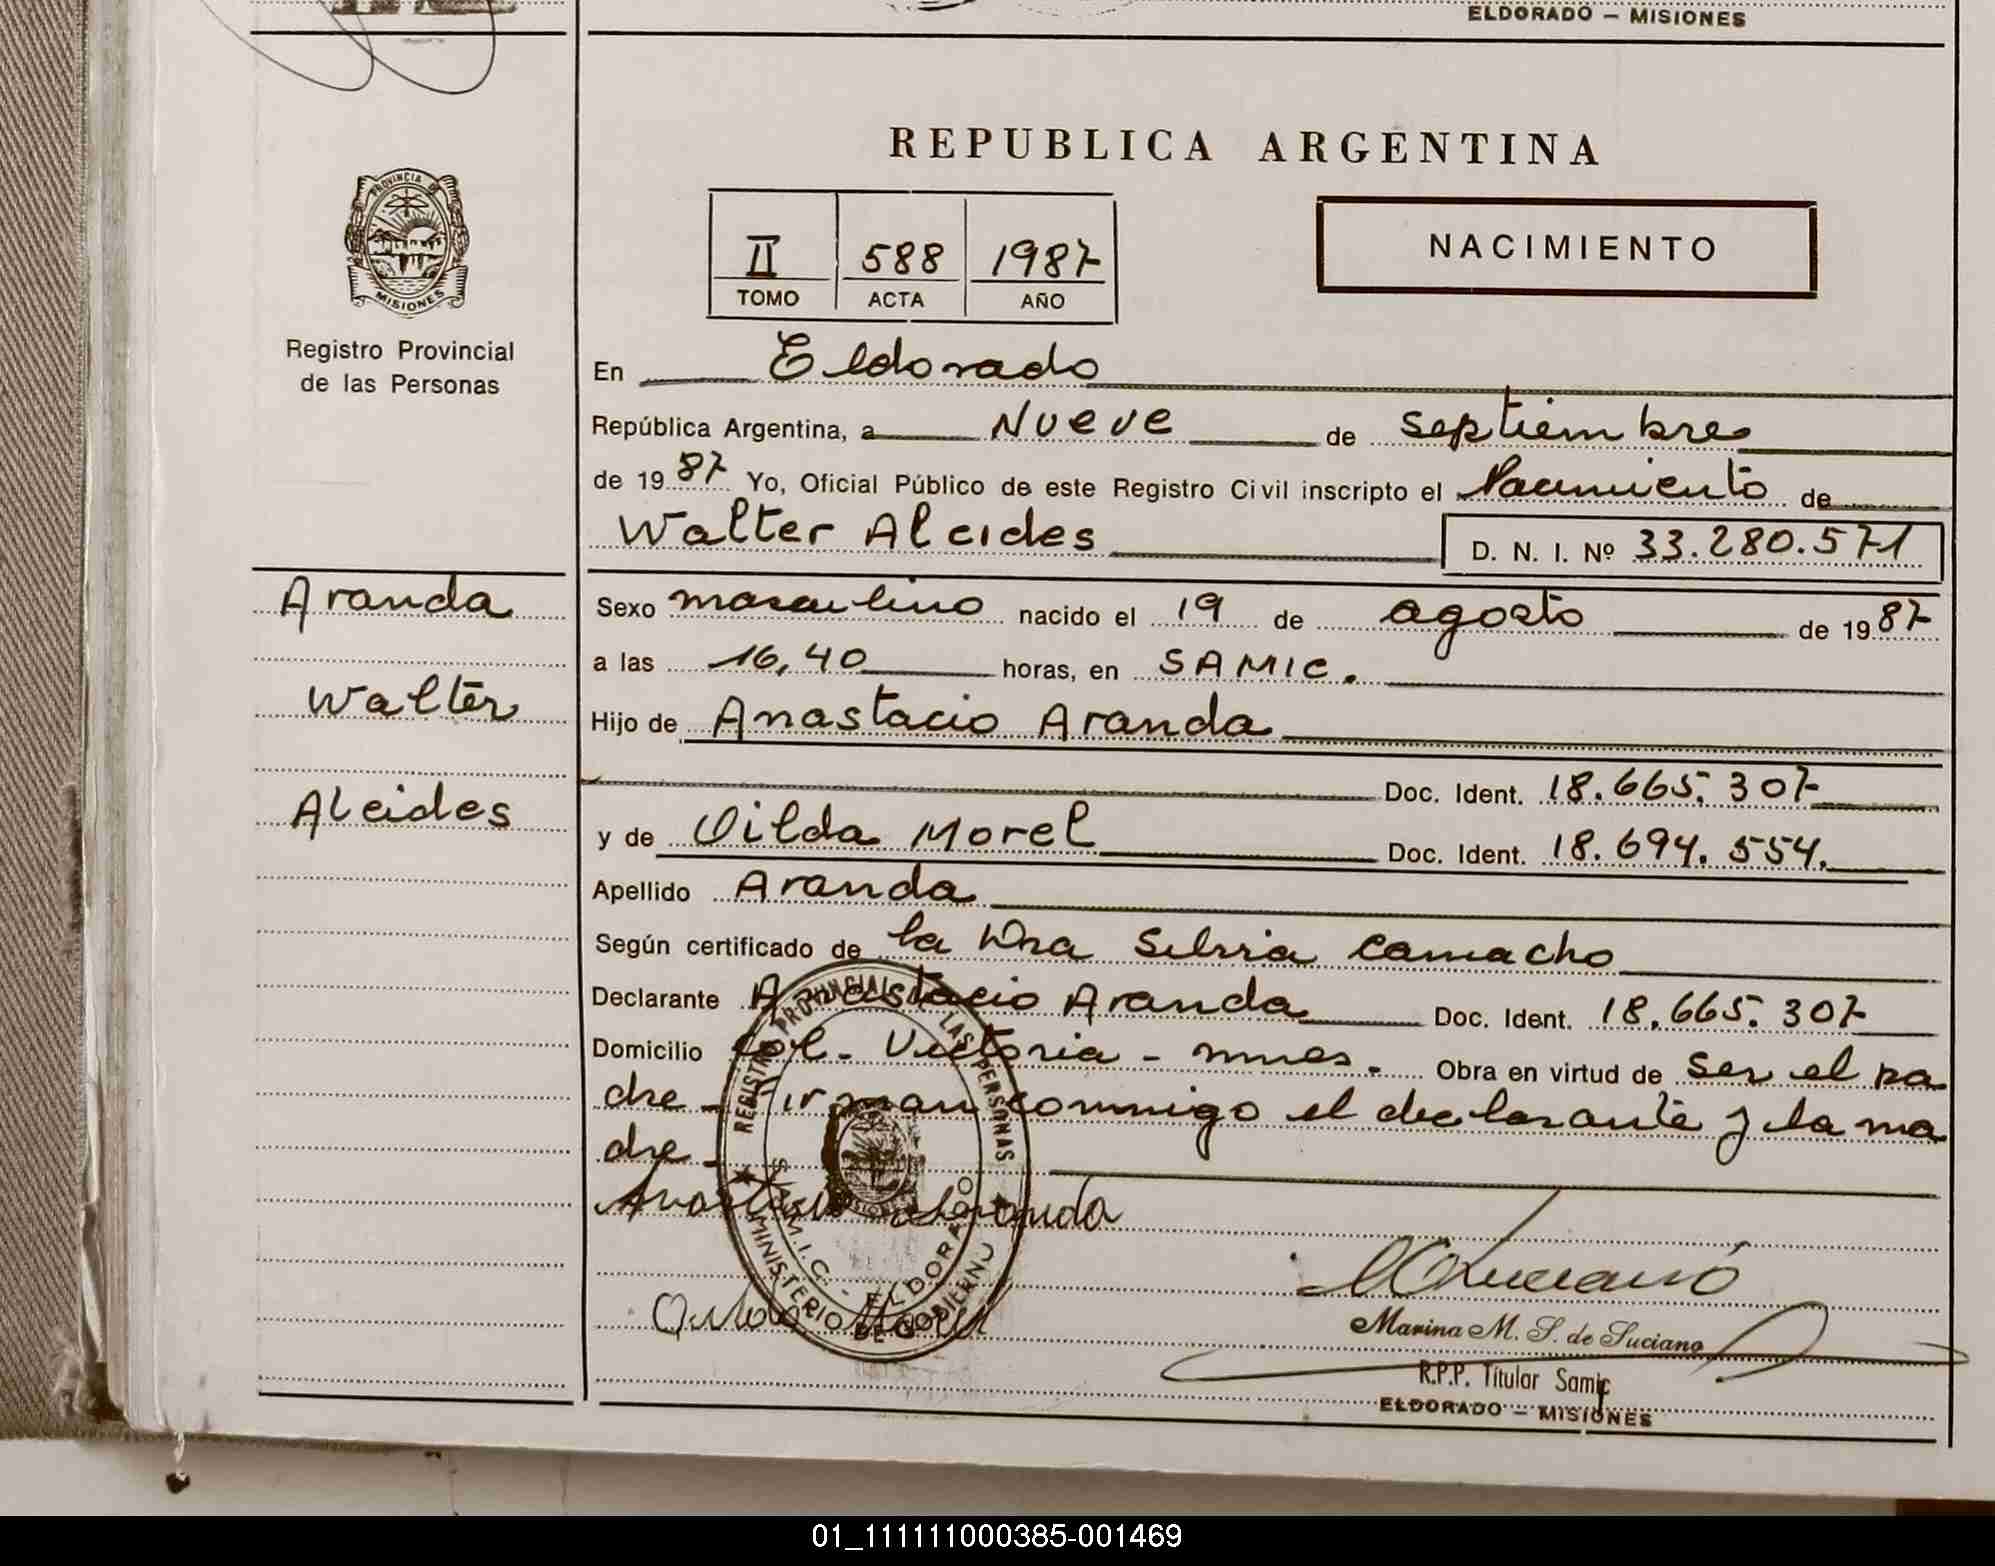 ELDORADO — MISIONES
REPUBLICA ARGENTINA
PROVINCIA DE
MISIONES
Registro Provincial
de las Personas
II 588 1987
TOMO ACTA AÑO
NACIMIENTO
En Eldorado
República Argentina, a Nueve de septiembre
de 1987 Yo, Oficial Público de este Registro Civil inscripto el Nacimiento de
Walter Alcides D. N. I. Nº 33.280.571
Aranda
Walter
Alcides
Sexo masculino nacido el 19 de agosto de 1987
a las 16,40 horas, en SAMIC.
Hijo de Anastacio Aranda
Doc. Ident. 18.665.307
y de Vilda Morel Doc. Ident. 18.694.554.
Apellido Aranda
Según certificado de la Dra Silvia Camacho
Declarante Anastacio Aranda Doc. Ident. 18.665.307
Domicilio Col. Victoria - mnes. Obra en virtud de ser el pa
dre - Firman conmigo el declarante y la ma
dre -
Anastacio Aranda
REGISTRO PROVINCIAL DE LAS PERSONAS
MINISTERIO DE GOBIERNO
S.A.M.I.C. - ELDORADO
MISIONES
Marina M. S. de Luciano
R.P.P. Titular Samic
ELDORADO — MISIONES
01_111111000385-001469